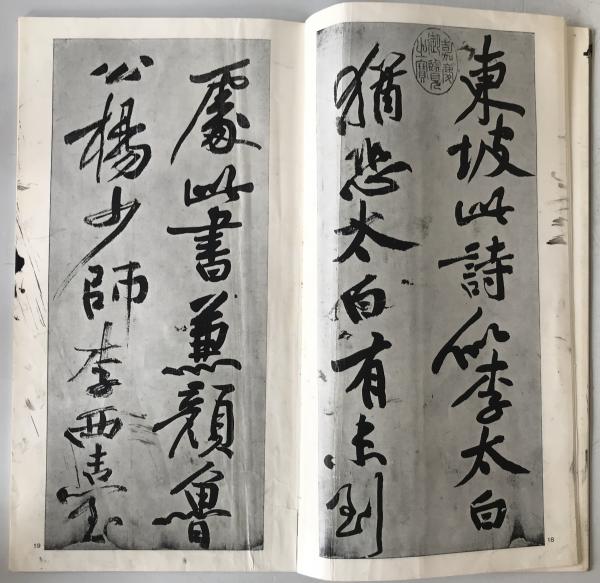 東坡此詩似李太白
猶恐太白有未到
處此書兼顏魯
公楊少師李西臺
嘉慶御覽之寶
18
19